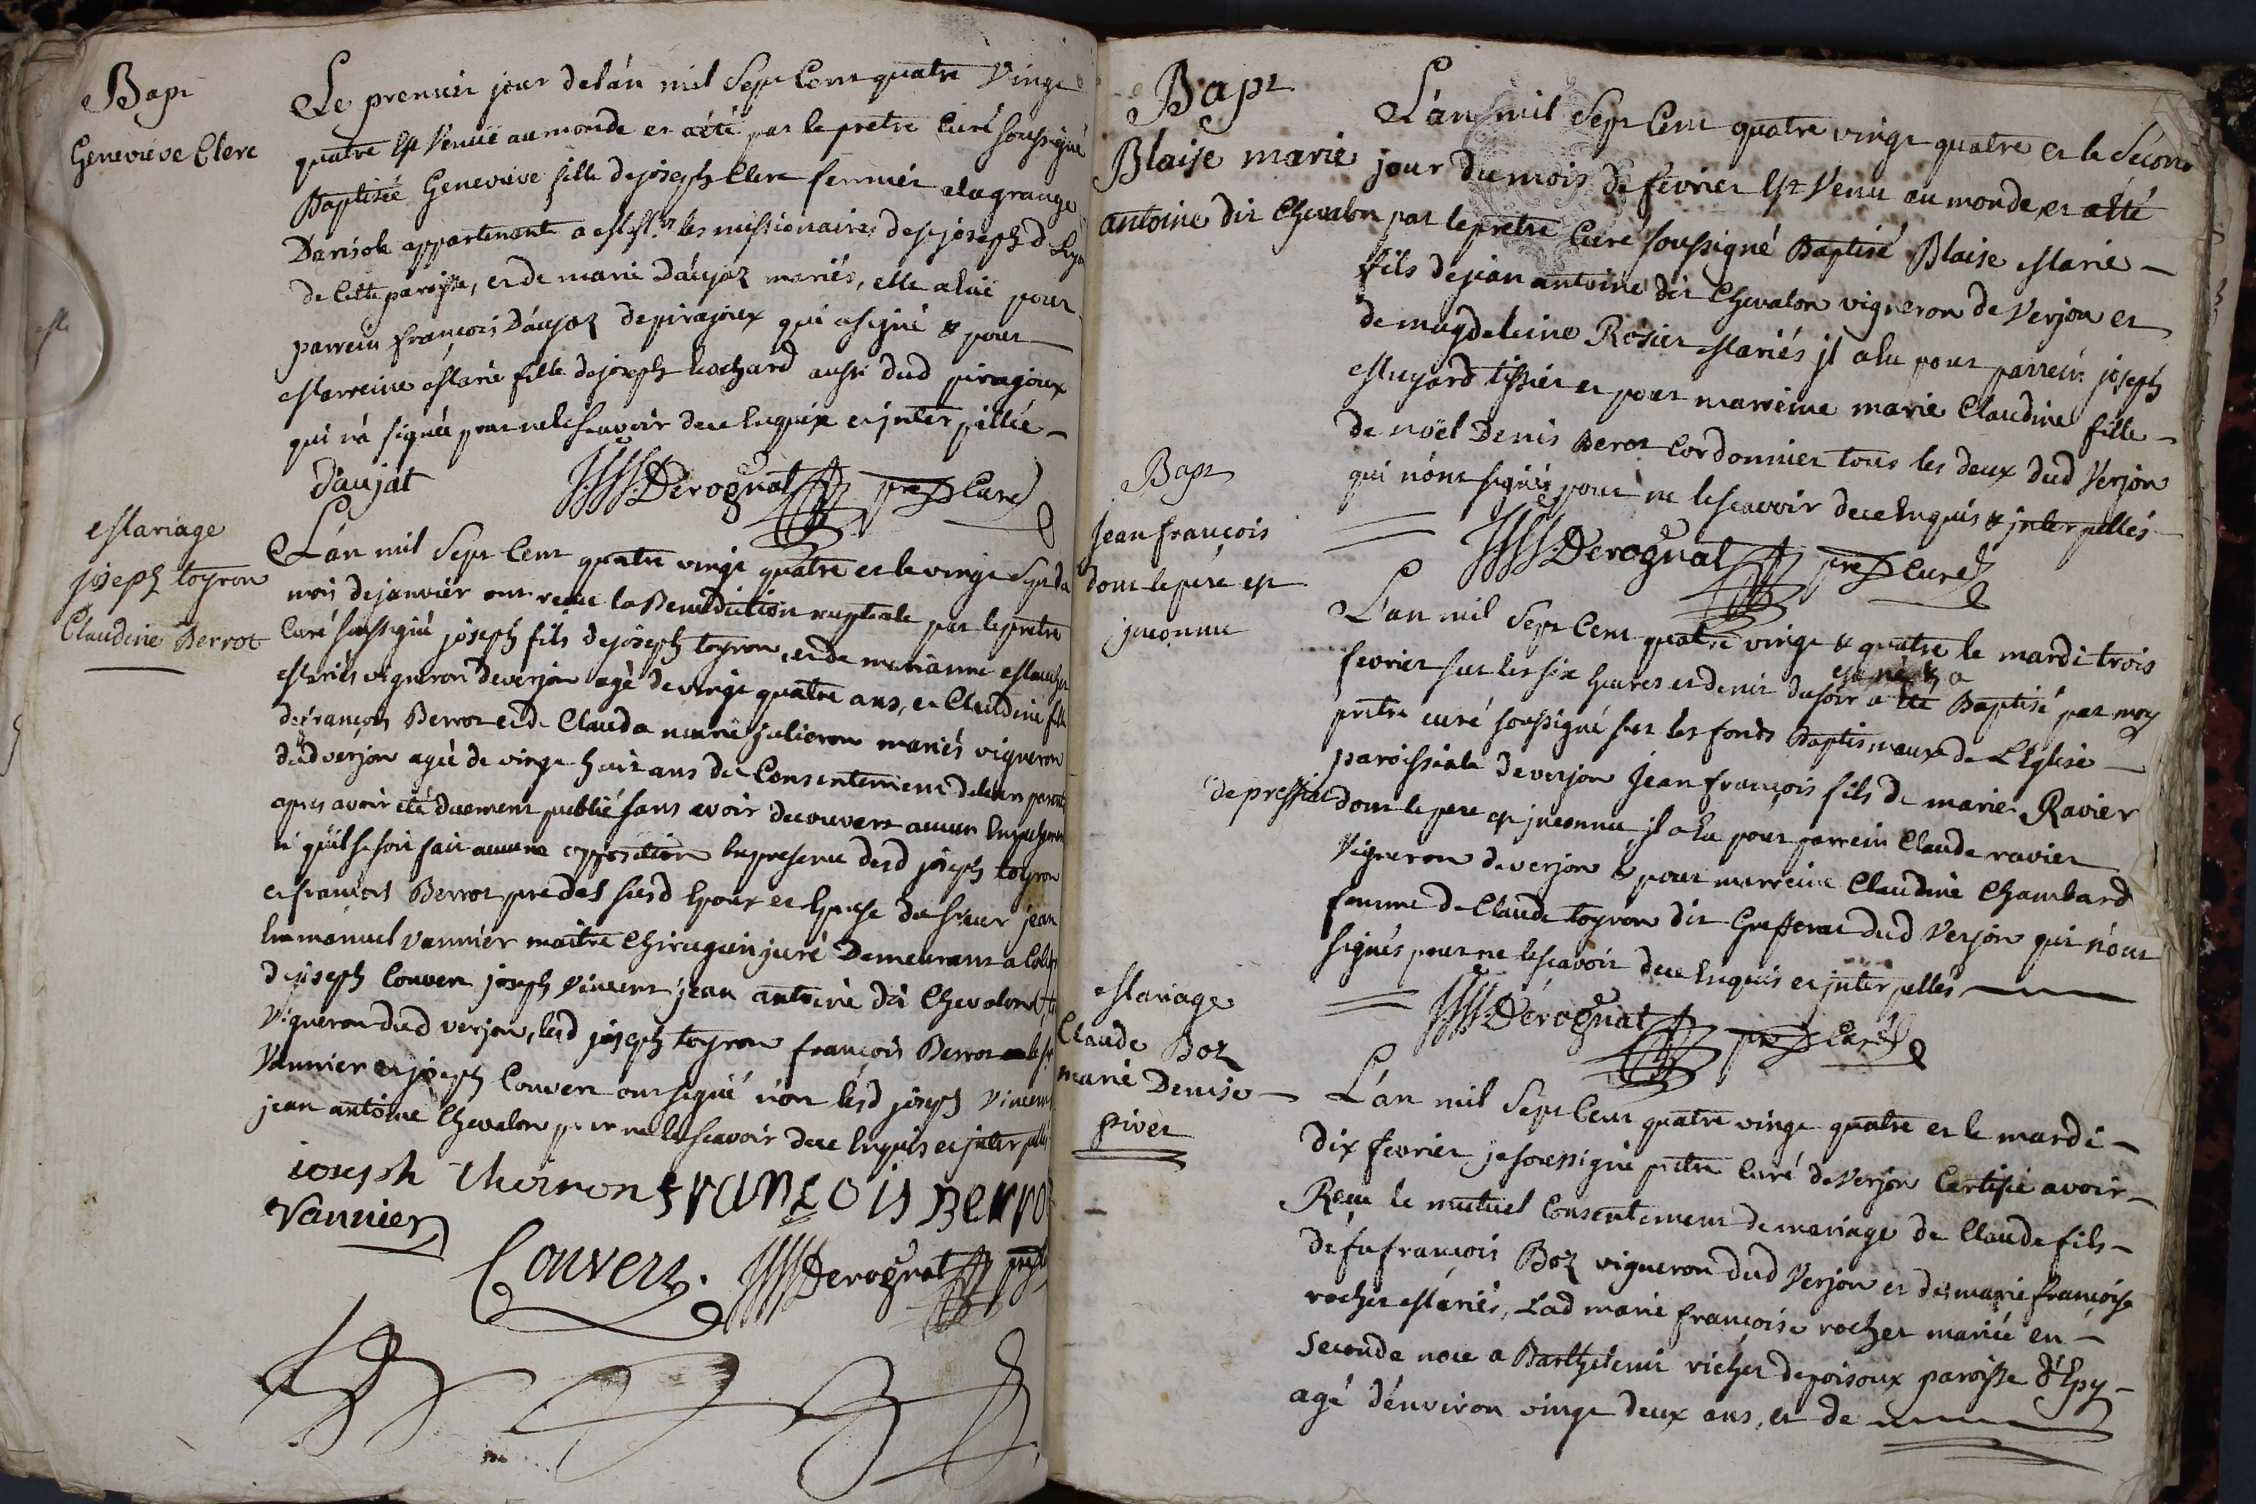 Bapt
Genevieve Clerc
Le premier jour de l'án mil Sept Cent quatre Vingt
quatre Est Venuë au monde et a été par le pretre Curé soussigné
Baptisée Genevieve fille de joseph Clerc fermier a la grange
Darisole appartenante a Mrs. les missionaires de st joseph de Lyon
de Cette paroisse, et de marie Dáujaz mariés, elle a Euë pour
parrein françois Dáujaz de pirajoux qui a signé & pour
Marreine Marie fille de joseph Rochard aussi dud pirajoux
qui n'a signée pour ne le scavoir de ce Enquise et jnterpellée
Daujat
JJJJ Derognat ptre Curé
Mariage
joseph toyron
Claudine Berrot
L'án mil Sept Cent quatre vingt quatre et le vingt Sept du
mois de janvier ont recue la Benediction nuptiale par le pretre
Curé soussigné joseph fils de joseph toyron, et de marianne
Mariés vigneron de verjon agé de vingt quatre ans, et Claudine fille
de françois Berrot et de Clauda marie julieron mariés vigneron
dud verjon agée de vingt huit ans du Consentement de leurs parents
apres avoir été duement publié sans avoir decouvert aucun Empechement
ni qu'il se soit fait aucune opposition En presence desd joseph toyron
et françois Berrot pre des susd Epoux et Epouse du sieur jean
Emmanuel Vannier maitre Chirugein juré Demeurant a
de joseph Couvert joseph Vincent jean antoine dit Chevalon
Vigneron dud verjon, lesd joseph toyron françois Berrot le sr
Vannier et joseph Couvert ont signé non lesd joseph Vincent
jean antoine Chevalon pour ne le scavoir de ce Enquis et jnterpellés
ioseph thoiron francois Berrot
Vannier
Couvert. JJJJ Derognat ptre
Bapt
Blaise marie
antoine dit Chevalon
L'an mil Sept Cent quatre vingt quatre et le Second
jour du mois de fevrier Est Venu au monde, et a été
par le prêtre Curé soussigné Baptisé Blaise Marie
fils de jean antoine dit Chevalon vigneron de Verjon et
de magdeleine Rosier Mariés jl a Eu pour parrein joseph
Mugard tissier et pour marreine marie Claudine fille
de noël Denis Berot Cordonnier tous les deux dud Verjon
qui n'ont signés pour ne le scavoir de ce Enquis & jnterpellés
JJJJ Derognat ptre Curé
Bapt
Jean françois
dont le pere est
jnconnu
L'an mil Sept Cent quatre vingt & quatre le mardi trois
fevrier sur les six heures et demie du soir est né & a été Baptisé par moy
prêtre curé soussigné sur les fonds Baptismaux de L'Eglise
paroissiale de verjon Jean françois fils de marie Ravier
de pressiat dont le pere est jnconnu, jl a Eu pour parrein Claude ravier
Vigneron de verjon & pour marreine Claudine Chambard
femme de Claude toyron dit Grefferat dud Verjon qui n'ont
signés pour ne le scavoir de ce Enquis et jnterpellés
JJJJ Derognat ptre Curé
Mariage
Claude Boz
marie Denise
pivet
L'án mil Sept Cent quatre vingt quatre et le mardi
dix fevrier je soussigné prêtre Curé de Verjon Certifie avoir
Recu le mutuel Consentement de mariage de Claude fils
de fu françois Boz vigneron dud Verjon et de marie françoise
rocher Mariés, Lad marie françoise rocher mariée en
Seconde noce a Barthelemi richer de poisoux paroisse d'Epy
agé d'environ vingt deux ans, et de